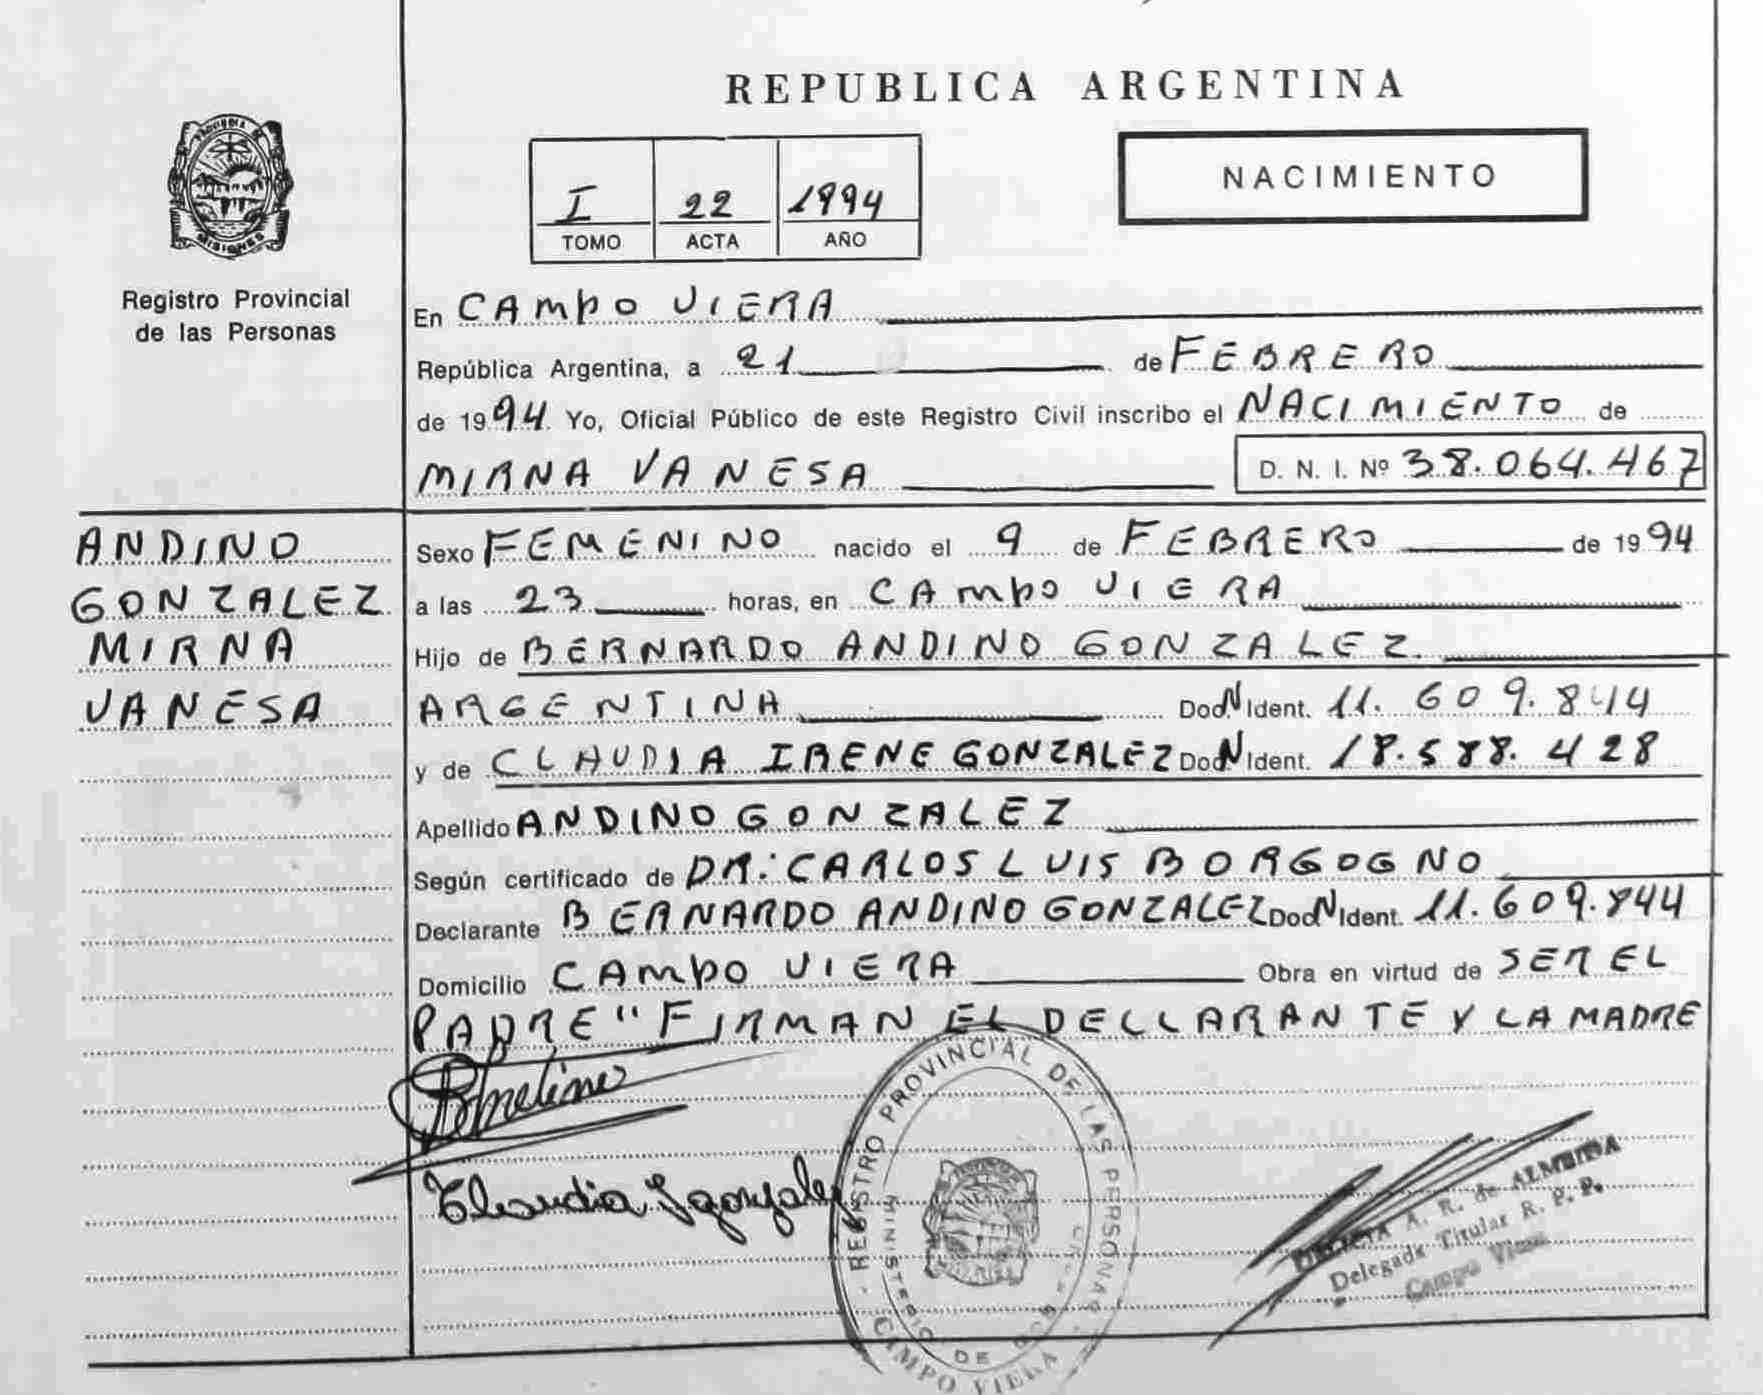 REPUBLICA ARGENTINA
PROVINCIA DE
MISIONES
Registro Provincial
de las Personas
I 22 1994
TOMO ACTA AÑO
NACIMIENTO
En CAMPO VIERA
República Argentina, a 21 de FEBRERO
de 1994 Yo, Oficial Público de este Registro Civil inscribo el NACIMIENTO de
MIRNA VANESA D. N. I. Nº 38.064.467
ANDINO
GONZALEZ
MIRNA
VANESA
Sexo FEMENINO nacido el 9 de FEBRERO de 1994
a las 23 horas, en CAMPO VIERA
Hijo de BERNARDO ANDINO GONZALEZ
ARGENTINA Doc. N Ident. 11.609.844
y de CLAUDIA IRENE GONZALEZ Doc. N Ident. 18.588.428
Apellido ANDINO GONZALEZ
Según certificado de DR: CARLOS LUIS BORGOGNO
Declarante BERNARDO ANDINO GONZALEZ Doc. N Ident. 11.609.844
Domicilio CAMPO VIERA Obra en virtud de SER EL
PADRE" FIRMAN EL DECLARANTE Y LA MADRE
Claudia I gonzalez
REGISTRO PROVINCIAL DE LAS PERSONAS
MINISTERIO DE
CAMPO VIERA
A. R. de ALMEIDA
Delegada Titular R. P. P.
Campo Viera